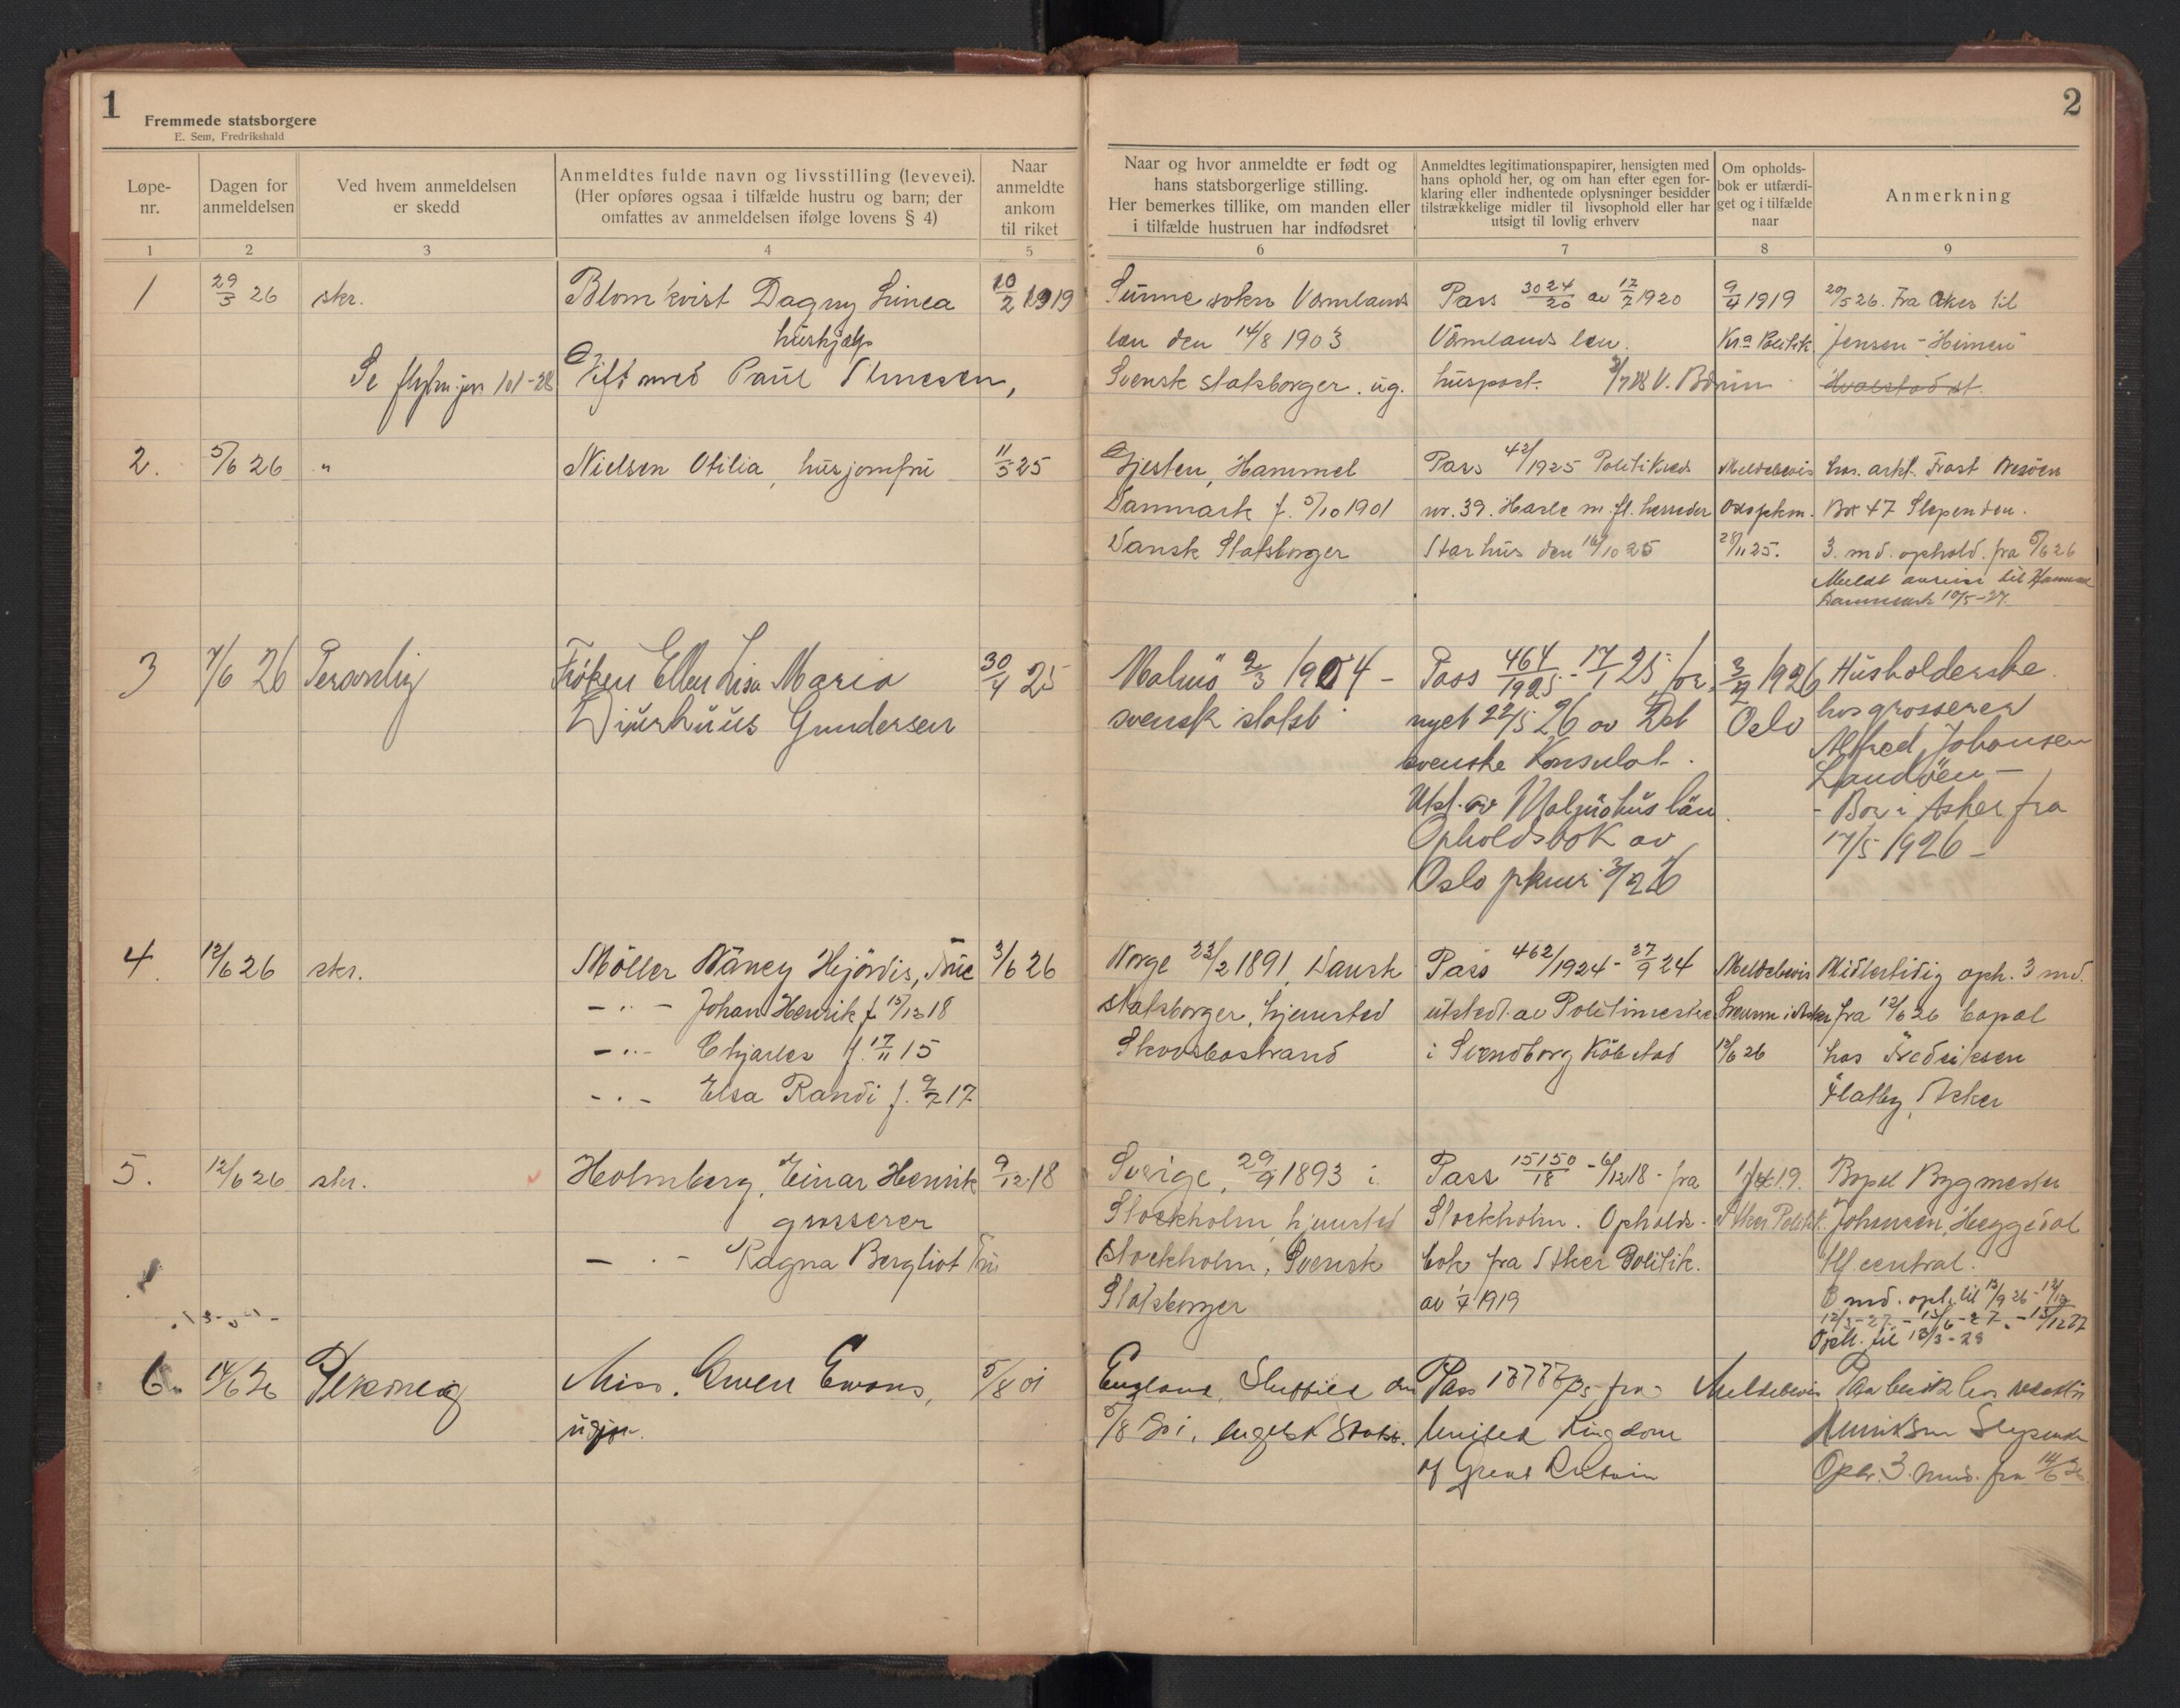 1
Fremmede statsborgere
E. Sem, Fredrikshald
2
Løpe-
nr.
Dagen for
anmeldelsen
Ved hvem anmeldelsen
er skedd
Anmeldtes fulde navn og livsstilling (levevei).
(Her opføres ogsaa i tilfælde hustru og barn; der
omfattes av anmeldelsen ifølge lovens § 4)
Naar
anmeldte
ankom
til riket
Naar og hvor anmeldte er født og
hans statsborgerlige stilling.
Her bemerkes tillike, om manden eller
i tilfælde hustruen har indfødsret
Anmeldtes legitimationspapirer, hensigten med
hans ophold her, og om han efter egen for-
klaring eller indhentede oplysninger besidder
tilstrækkelige midler til livsophold eller har
utsigt til lovlig erhverv
Om opholds-
bok er utfærdi-
get og i tilfælde
naar
Anmerkning
1 2 3 4 5 6 7 8 9
1 29/3 26 skr. Blomkvist Dagny Linea 10/2 1919
hushjælp
Se 101-28 Gift med Paul
Sunne sokn Värmlands
län den 14/8 1903
Svensk statsborger. ug.
Pass 3024/20 av 17/7 1920
Värmlands län.
huspost.
9/4 1919
Kra Politik.
20/5 26. Fra Aker til
Jensen - Heimen
Hvalstad st.
2. 5/6 26 " Nielsen Otilia, husjomfru 11/5 25
Gjesten, Hammel
Danmark f. 5/10 1901
Dansk Statsborger
Pass 42/1925 Politikreds
nr. 39. Hasle m. fl. herreder
Aarhus den 16/10 25
Meldebevis
Oslo pkm.
28/11 25.
hos. arkt. Frost
Box 47 Slependen.
3. md. ophold. fra 5/6 26
Meldt avreise til Hammel
Danmark 10/5-27.
3 7/6 26 Personlig Frøken Ellen Lisa Maria 30/4 25
Djurhuus Gundersen
Malmö 2/3 1904 -
svensk statsb.
Pass 464/1925 - 17/1 25, for-
nyet 22/5 26 av Det
svenske Konsulat.
Utst. av Malmöhus län.
Opholdsbok av
Oslo pkmr. 3/2 26
3/2 1926
Oslo
Husholderske
hos grosserer
Alfred Johansen
Landöen -
- Bor i Asker fra
17/5 1926 -
4. 12/6 26 skr. Möller Nancy Hjördis, Frue 3/6 26
- " - Johan Henrik f. 15/12 18
- " - Charles f. 17/11 15
- " - Elsa Randi f. 9/7 17
Norge 22/2 1891, Dansk
statsborger, hjemsted
Skovsbostrand
Pass 462/1924 - 27/9 24
utstedt av Politimester
i Svendborg Köbstad
Meldebevis
Lensm i Asker
12/6 26
Midlertidig oph. 3 md.
fra 12/6 26 bopæl
hos Fredriksen
Flatby, Asker
5. 12/6 26 skr. Holmberg, Einar Henrik 9/12 18
grosserer
- " - Ragna Bergliot Fru
Sverige, 29/9 1893 i
Stockholm, hjemsted
Stockholm, Svensk
Statsborger
Pass 15150/18 - 6/12 18 - fra
Stockholm. Opholds-
bok fra Aker Politik.
av 1/4 1919
1/4 19.
Aker Politik.
Bopæl Bygmester
Johansen, Heggedal
tlf. central.
3 md. oph. til 12/9 26 - 12/12
12/3-27 - 12/6-27 - 12/12 27
Oph. til 12/3-28
6. 14/6 26 Personlig Miss. Gwen Evans, 5/8 01
England, Sheffield den
5/8 01, engelsk Statsb.
Pass fra
United Kingdom
of Great Britain
Meldebevis
Paa besök hos
Henriksen Slependen
Oph. 3 mnd. fra 14/6 26